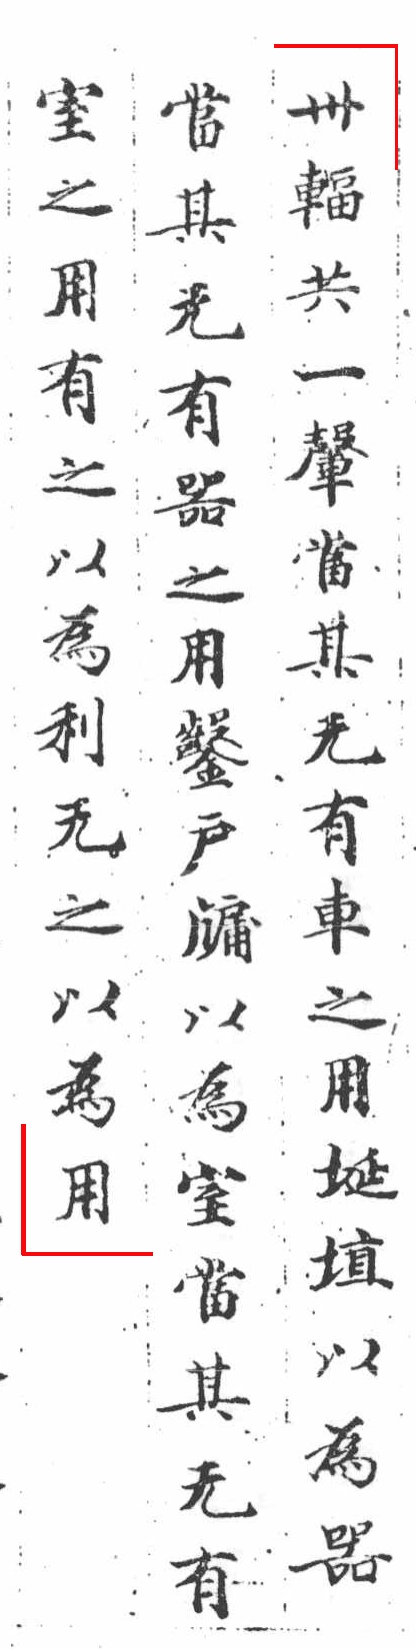 卅輻共一轂當其无有車之用埏埴以為器
當其无有器之用鑿戶牖以為室當其无有
室之用有之以為利无之以為用